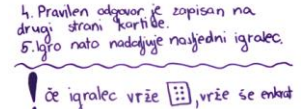 4. Pravilen odgovor je zapisan na
drugi strani kartice.
5. Igro nato nadaljuje naslednji igralec.
! če igralec vrže ⚅, vrže še enkrat